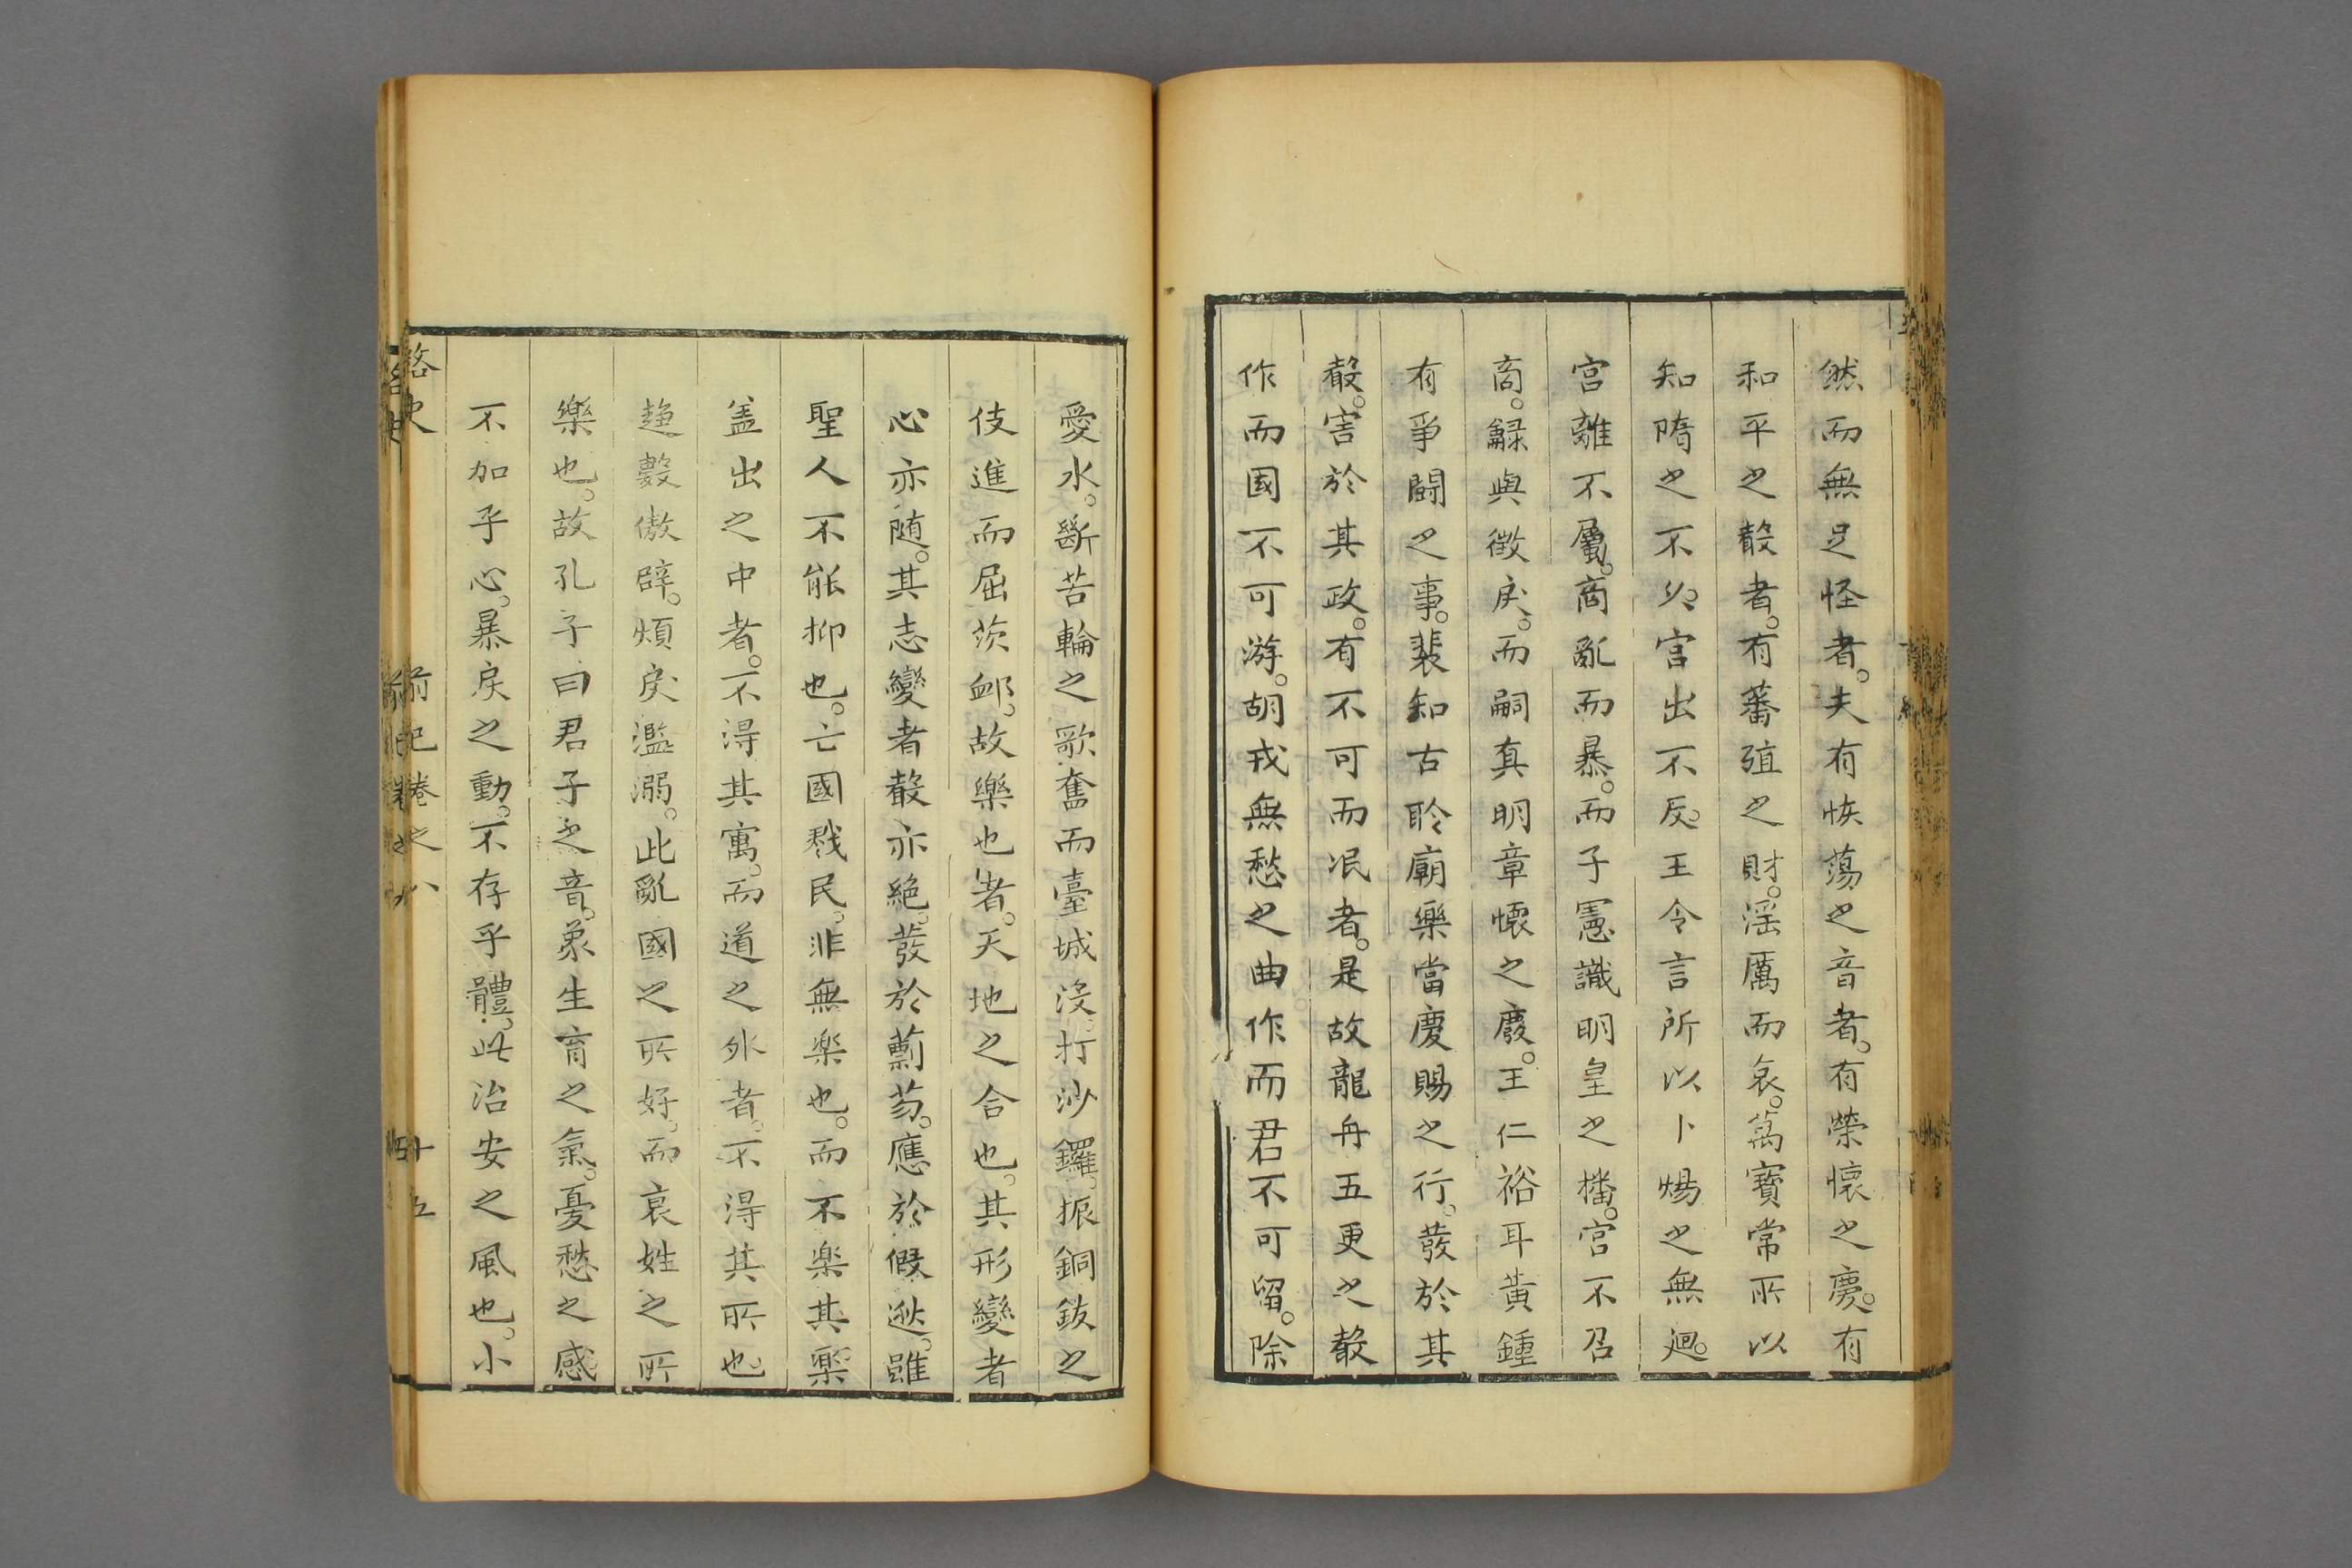 然而無足怪者。夫有恢蕩之音者。有榮懷之慶。有
和平之聲者。有蕃殖之財。滛厲而哀。萬寶常所以
知隋之不久。宫出不反。王令言所以卜煬之無廻。
宫離不屬。商亂而暴。而子憲識明皇之播。宫不召
商。鯀與徵戾。而嗣真明章懷之廢。王仁裕耳黃鍾
有爭鬪之事。裴知古聆廟樂當慶賜之行。發於其
聲。害於其政。有不可而泯者。是故龍舟五更之聲
作而國不可游。胡戎無愁之曲作而君不可留。除
愛水。斷苦輪之歌奮而臺城沒。打沙鑼。振銅鈸之
伎進而屈茨衂。故樂也者。天地之合也。其形變者
心亦随。其志變者聲亦絶。發於薊芴。應於假逖。雖
聖人不能抑也。亡國戮民。非無樂也。而不樂其樂
盖出之中者。不得其寓。而道之外者。不得其所也
趍數傲辟。煩戾濫溺。此亂國之所好。而衰姓之所
樂也。故孔子曰君子之音。象生育之氣。憂愁之感
不加乎心。暴戾之動。不存乎體。此治安之風也。小
路史 前紀卷之八 十五